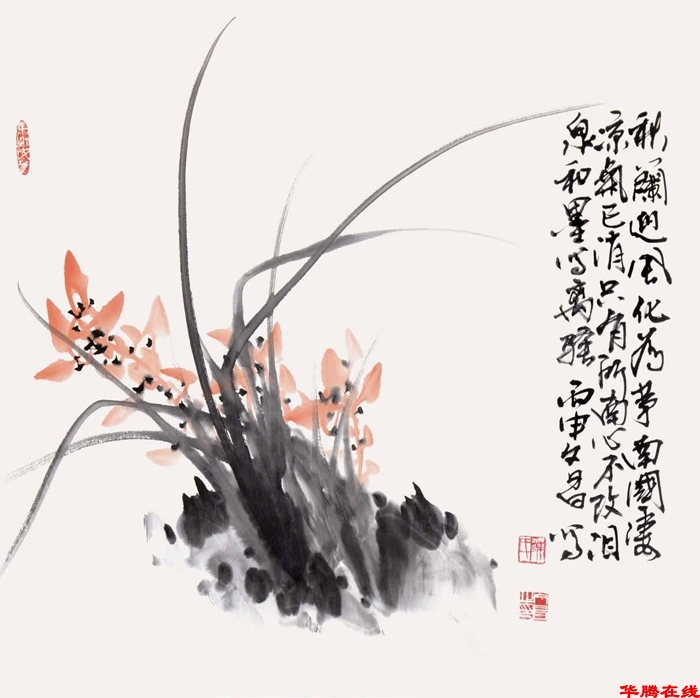 秋蘭迎風化為茅南國凄
凉氣已消只有所南心不改泪
泉和墨写离騷丙申文昌写
华腾在线